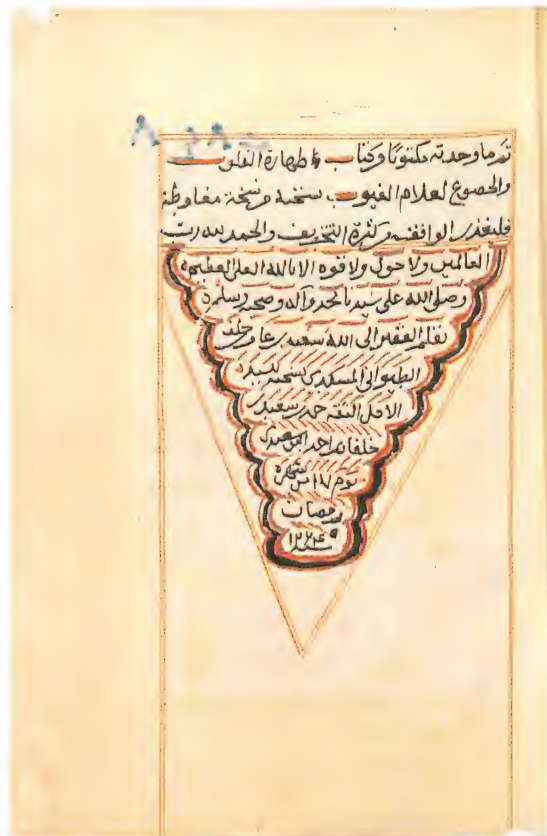 تم ما وجدته مكتوبًا من كتاب طهارة القلوب
والخضوع لعلام الغيوب نسخته من نسخة
فليعذر الواقف من كثرة التحريف والحمد لله رب
العالمين ولا حول ولا قوة الا بالله العلي العظيم
وصلى الله على سيدنا محمد وآله وصحبه وسلم
بقلم الفقير الى الله سعيد بن عامر بن خلف
الطيواني المسكدي نسخته لسيده
الاجل الثقة حمد بن سعيد بن
خلفان بن احمد البوسعيدي
يوم ١٧ من شهر
رمضان
سنة ١٢٢٤